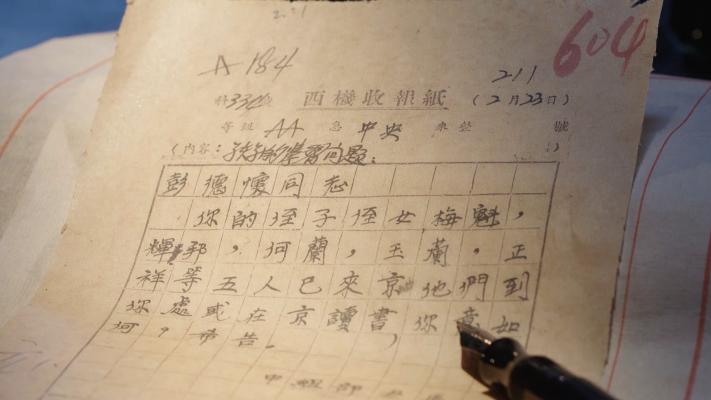 A 184
604
211
特334號 西機收報紙 (2月23日)
等級 AA 急 中央 來 號
(內容：孩子的學習問題。)
彭德懷同志
你的侄子侄女梅魁，
輝邦，何蘭，玉蘭，正
祥等五人已來京他們到
你處或在京讀書，你意如
何，市告。
中組部